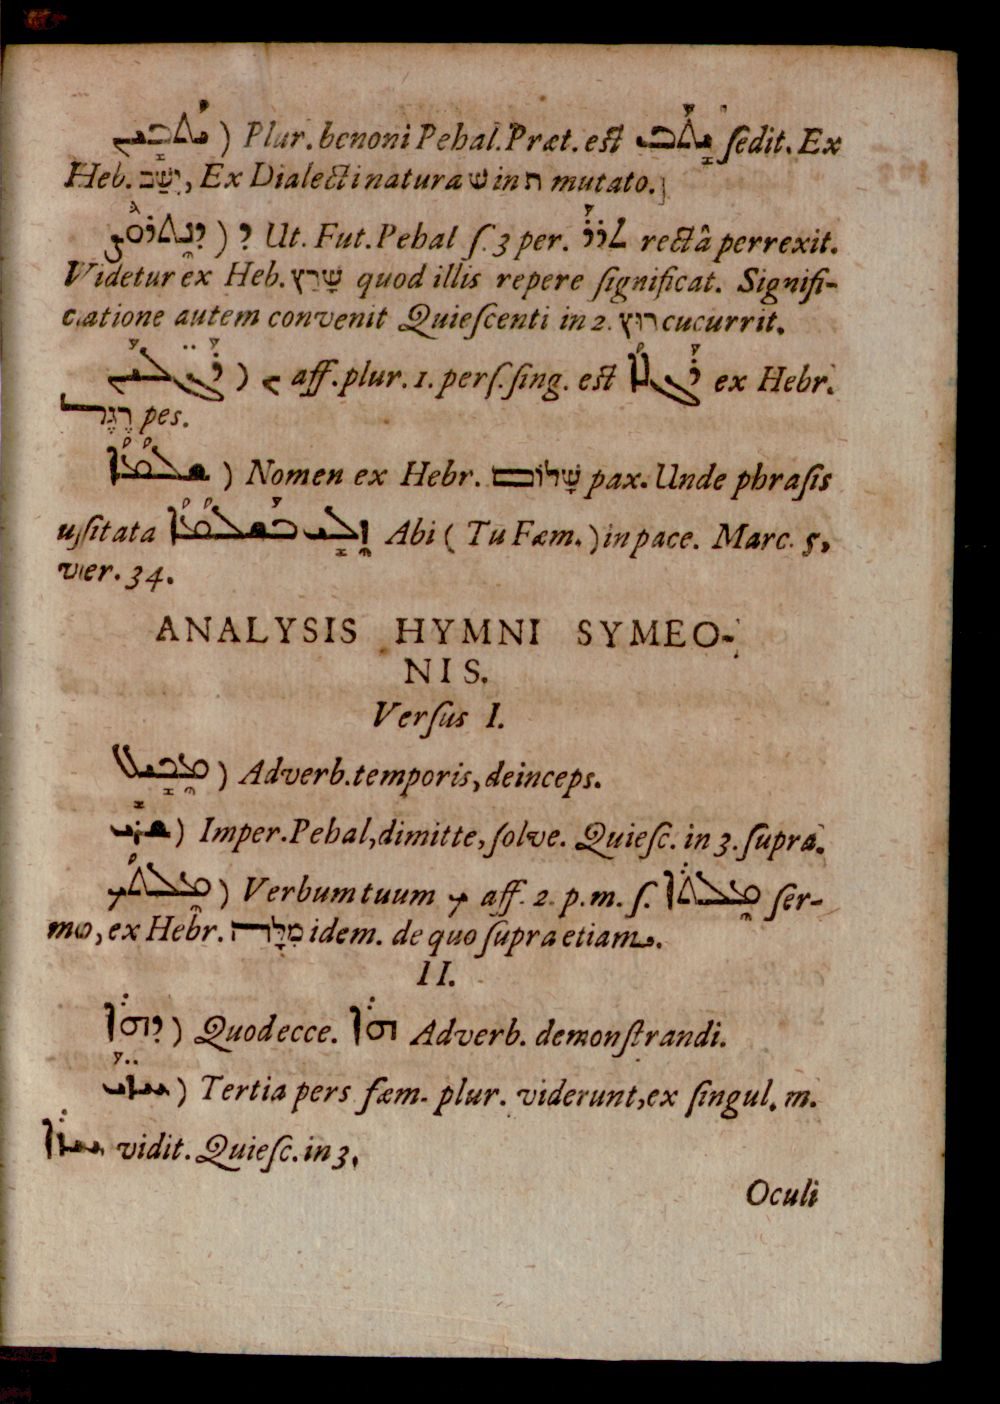 ܝܬܒܝܢ ) Plur. benoni Pehal. Præt. est ܝܬܒ ſedit. Ex
Heb. יָשַׁב, Ex Dialecti natura שׁ in ת mutato.
) ܕ Ut. Fut. Pehal ſ. 3 per. ܬܪܨ rectâ perrexit.
Videtur ex Heb. שָׁרַץ quod illis repere ſignificat. Signifi-
catione autem convenit Quieſcenti in 2. רוץ cucurrit.
ܪܓܠܝܢ ) ܢ aff. plur. 1. perſ. ſing. eſt ܪܓܠܐ ex Hebr.
רֶגֶל pes.
ܫܠܡܐ ) Nomen ex Hebr. שָׁלוֹם pax. Unde phraſis
uſſitata ܙܠܝ ܒܫܠܡܐ Abi ( Tu Fæm. ) in pace. Marc. 5,
ver. 34.
ANALYSIS HYMNI SYMEO-
NIS.
Verſus I.
ܡܟܝܠ ) Adverb. temporis, deinceps.
ܫܪܝ ) Imper. Pehal, dimitte, ſolve. Quieſc. in 3. ſupra.
ܡܠܬܟ ) Verbum tuum ܟ aff. 2. p. m. ſ. ܡܠܬܐ ſer-
mo, ex Hebr. מִלָּה idem. de quo ſupra etiam.
II.
ܕܗܐ ) Quod ecce. ܗܐ Adverb. demonſtrandi.
ܚܙܝ ) Tertia pers fæm. plur. viderunt, ex ſingul. m.
ܚܙܐ vidit. Quieſc. in 3.
Oculi